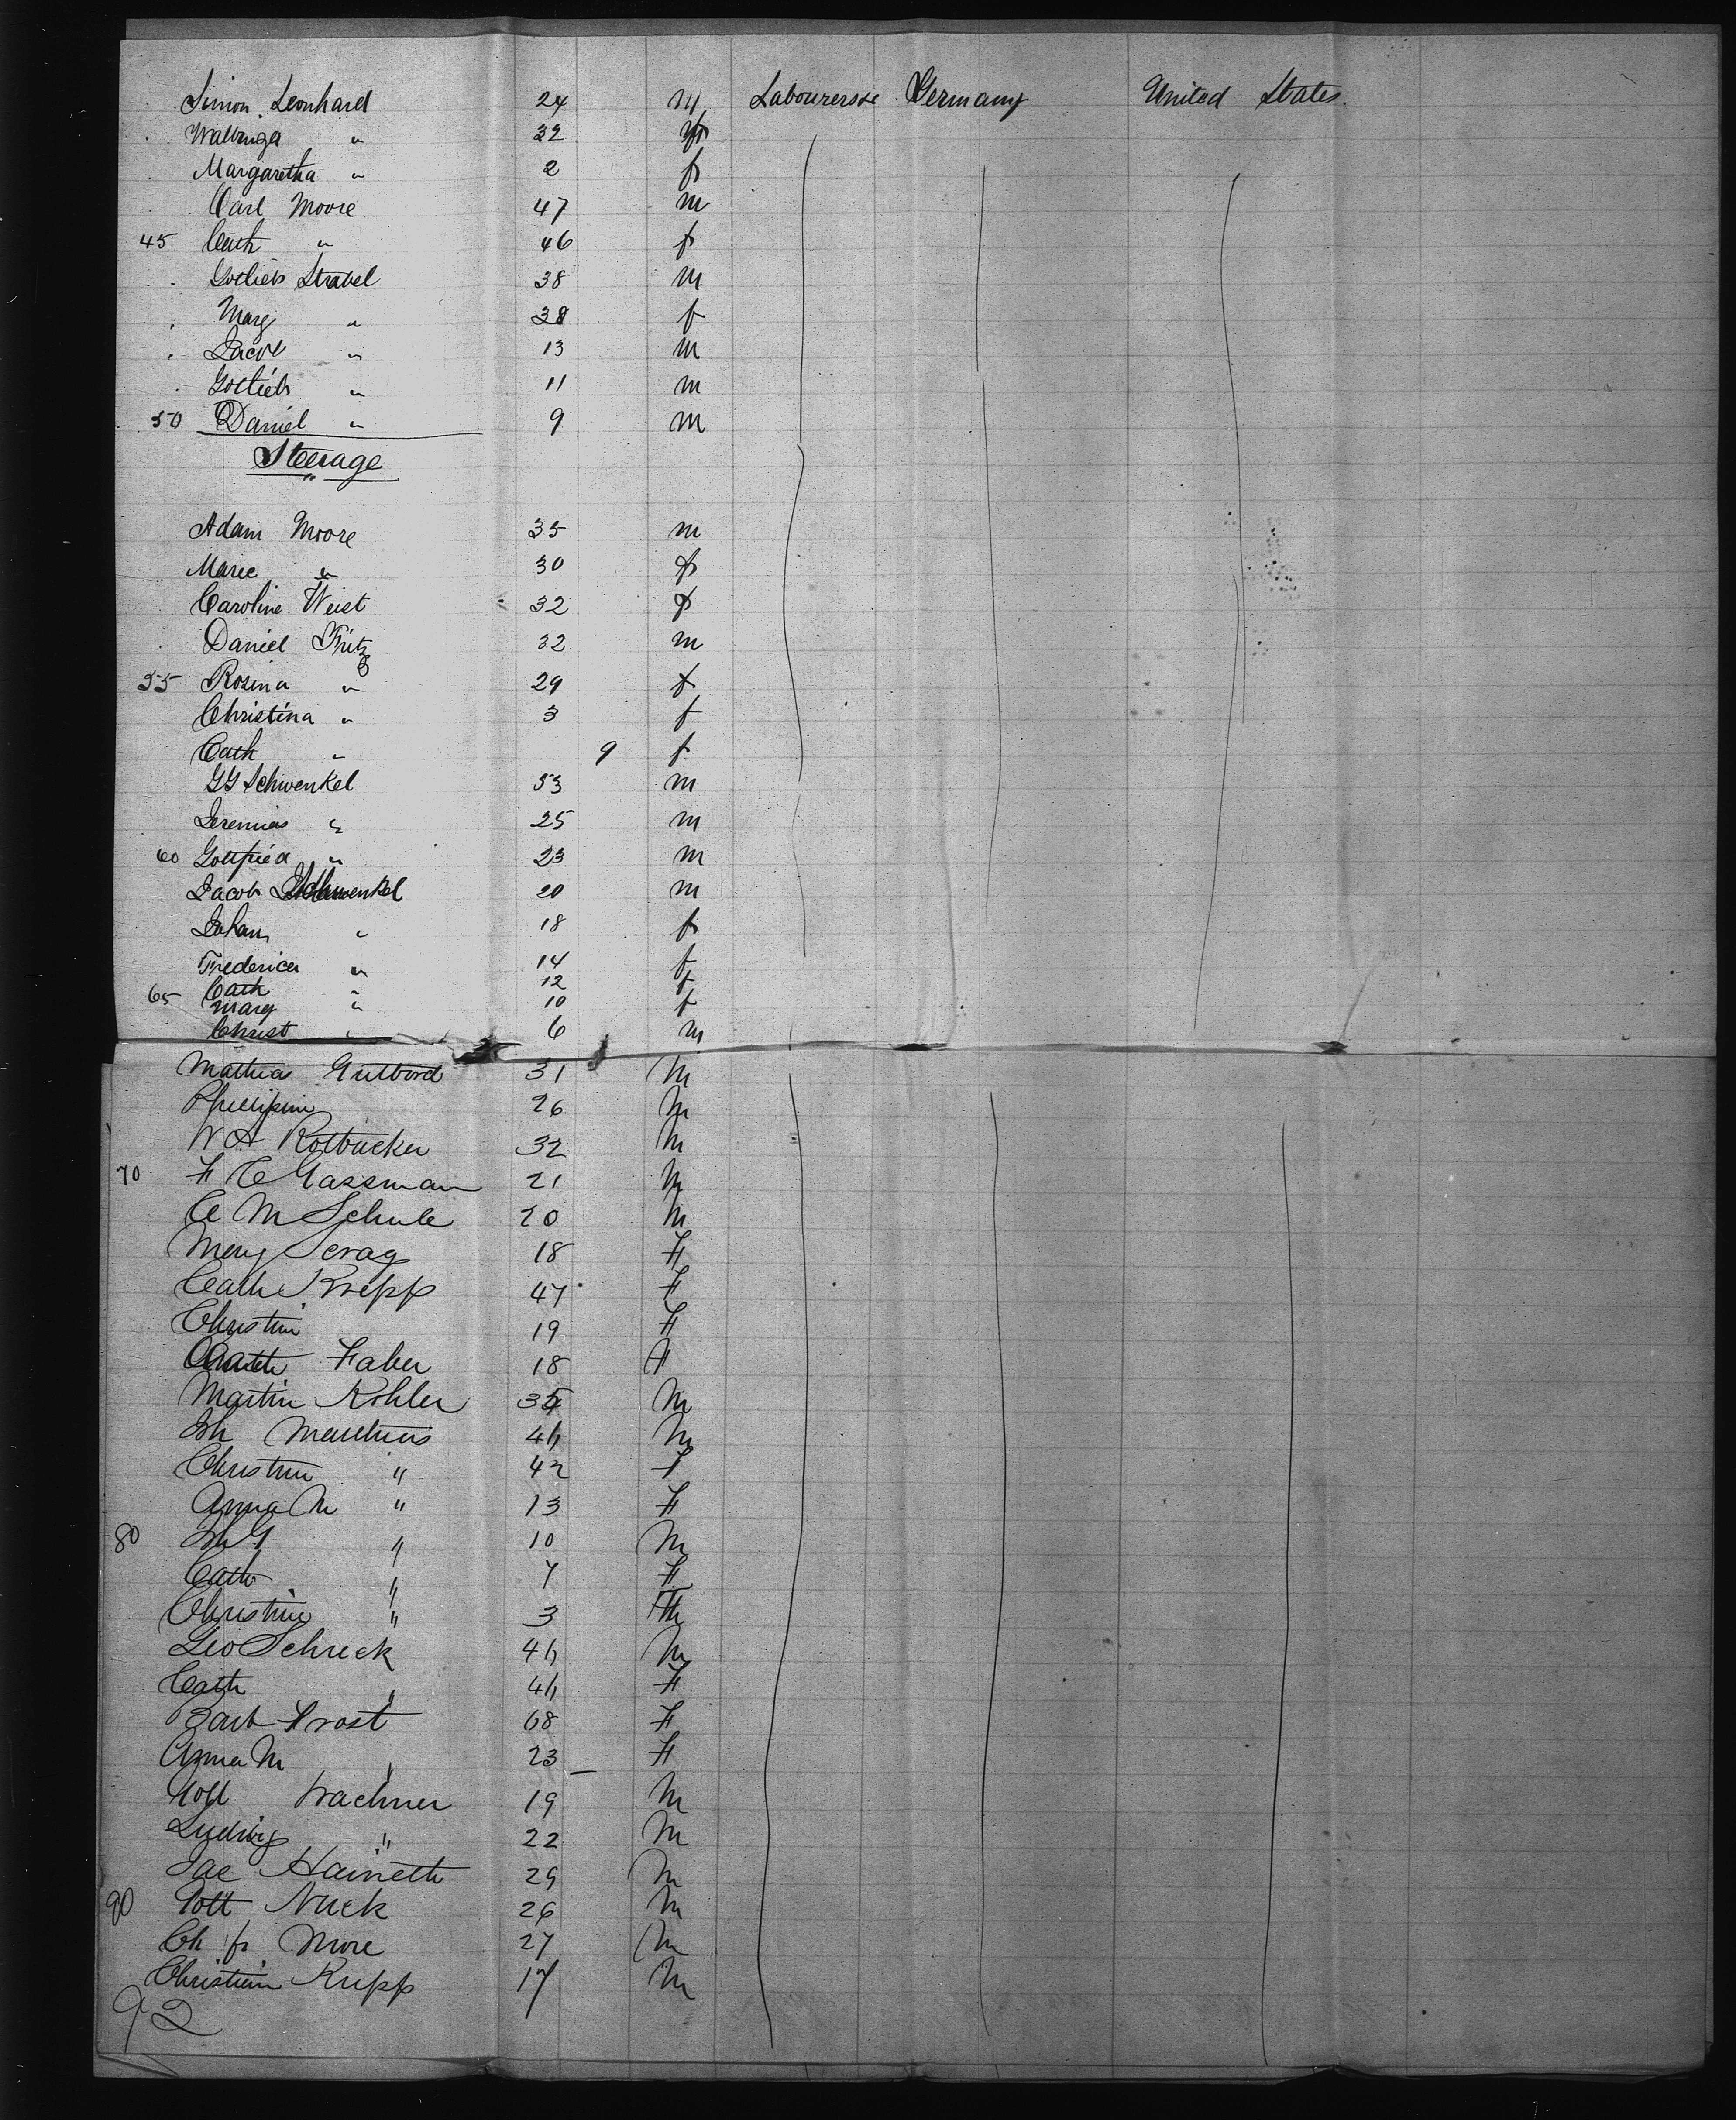 Simon Leonhard 24 M Labourers &c Germany United States.
Walbruga " 32 f
Margaretha " 2 f
Carl Moore 47 m
45 Cath " 46 f
Gotlieb Strabel 38 m
Marg " 38 f
Jacob " 13 m
Gotlieb " 11 m
50 Daniel " 9 m
Steerage
Adam Moore 35 m
Marie " 30 f
Caroline Weist 32 f
Daniel Fritz 32 m
55 Rosina " 29 f
Christina " 3 f
Cath " 9 f
GG Schwenkel 53 m
Jeremias " 25 m
60 Gottfried " 23 m
Jacob Schwenkel 20 m
Johan " 18 f
Frederica " 14 f
Cath " 12 f
65 Marg " 10 f
Christ " 6 m
Mathias Gutbrod 31 M
Phillipine 26 M
W A Rotbucker 32 M
70 F C Gassman 21 M
C M Schule 20 M
Merg Serag 18 F
Cath Krepp 47 F
Christin 19 F
Faber 18 F
Martin Kohler 35 M
Joh 44 M
Christine " 42 F
Anna M " 13 F
80 Joh G " 10 M
Cath " 7 F
Christine " 3
Geo Schreck 44 M
Cath " 44 F
Barb Frost 68 F
Anna M " 23 F
Gott Wachner 19 M
Ludwig " 22 M
Jac Haineth 29 M
90 Gott Nuck 26 M
Ch fr More 27 M
Christian Krepp 17 M
92